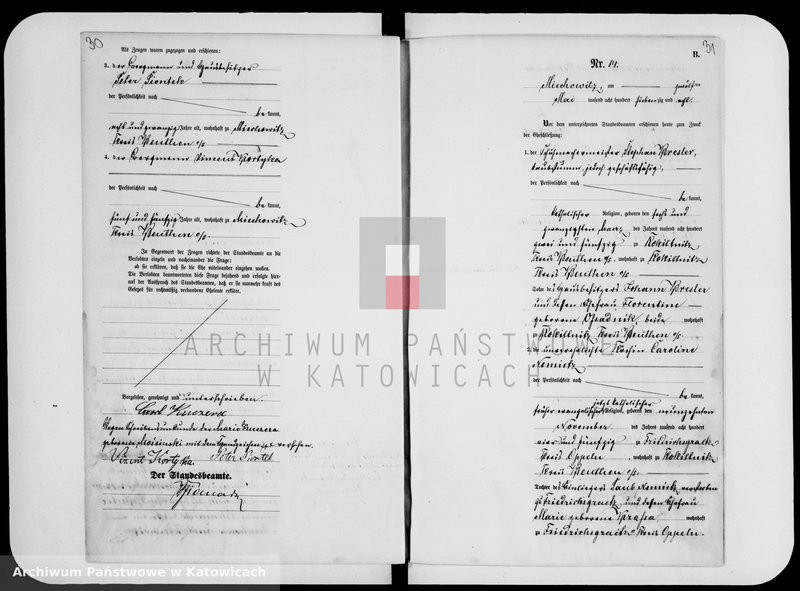 30
Als Zeugen waren zugezogen und erschienen:
3. der Bergmann und Hausbesitzer
Peter Piontek
der Persönlichkeit nach
be kannt,
acht und zwanzig Jahre alt, wohnhaft zu Miechowitz
Kreis Beuthen o/s.
4. der Bergmann Vincent Kortyka
der Persönlichkeit nach
be kannt,
fünf und fünfzig Jahre alt, wohnhaft zu Miechowitz
Kreis Beuthen o/s.
In Gegenwart der Zeugen richtete der Standesbeamte an die
Verlobten einzeln und nacheinander die Frage:
ob sie erklären, daß sie die Ehe miteinander eingehen wollen.
Die Verlobten beantworteten diese Frage bejahend und erfolgte hier-
auf der Ausspruch des Standesbeamten, daß er sie nunmehr kraft des
Gesetzes für rechtmäßig verbundene Eheleute erkläre.
Vorgelesen, genehmigt und unterschrieben.
Carl
Wegen Schreibensunkunde der Marie
geborene mit dem Handzeichen +++ versehen.
Vinzent Kortyka. Peter Piontek
Der Standesbeamte.
31
B.
Nr. 14.
Miechowitz, am zwölften
Mai tausend acht hundert siebenzig und acht.
Vor dem unterzeichneten Standesbeamten erschienen heute zum Zweck
der Eheschließung:
1. der Schuhmachermeister Stephan Bresler,
taubstumm jedoch geschäftsfähig,
der Persönlichkeit nach
be kannt,
katholischer Religion, geboren den sechs und
zwanzigsten des Jahres tausend acht hundert
zwei und fünfzig zu Rokittnitz
Kreis Beuthen o/s. wohnhaft zu Rokittnitz
Kreis Beuthen o/s
Sohn des Hausbesitzers Johann Bresler
und dessen Ehefrau Florentine
geborene Osadnik, beide wohnhaft
zu Rokittnitz Kreis Beuthen o/s.
2. die unverehelichte Köchin Caroline
Nemietz
der Persönlichkeit nach
be kannt,
jetzt katholischer
früher evangelischer Religion, geboren den neunzehnten
November des Jahres tausend acht hundert
vier und fünfzig zu Friedrichsgraetz
Kreis Oppeln, wohnhaft zu Rokittnitz
Kreis Beuthen o/s.
Tochter des Einliegers Nemietz verstorben
zu Friedrichsgraetz und dessen Ehefrau
Marie geborene wohnhaft
zu Friedrichsgraetz Kreis Oppeln.
ARCHIWUM PAŃSTWOWE
W KATOWICACH
Archiwum Państwowe w Katowicach